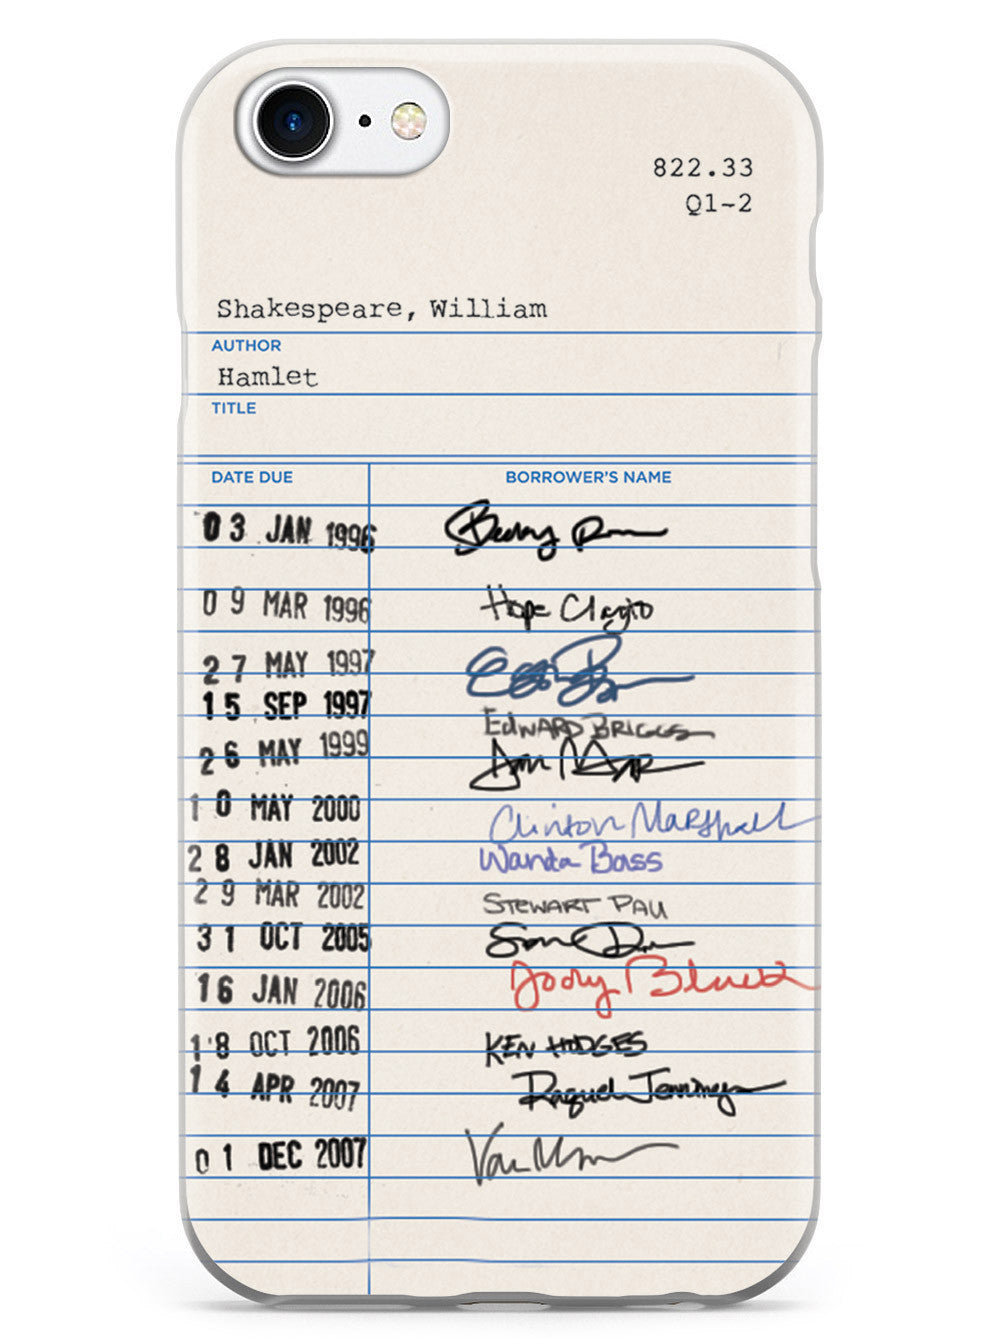 822.33
Q1-2
Shakespeare, William
AUTHOR
Hamlet
TITLE
DATE DUE BORROWER'S NAME
03 JAN 1996
09 MAR 1996 Hope
27 MAY 1997
15 SEP 1997 EDWARD BRIGGS
26 MAY 1999
10 MAY 2000 Clinton Marshall
28 JAN 2002 Wanda Bass
29 MAR 2002 STEWART PAU
31 OCT 2005
16 JAN 2006 Jody Black
18 OCT 2006 KEN HODGES
14 APR 2007 Raquel Jennings
01 DEC 2007 Van